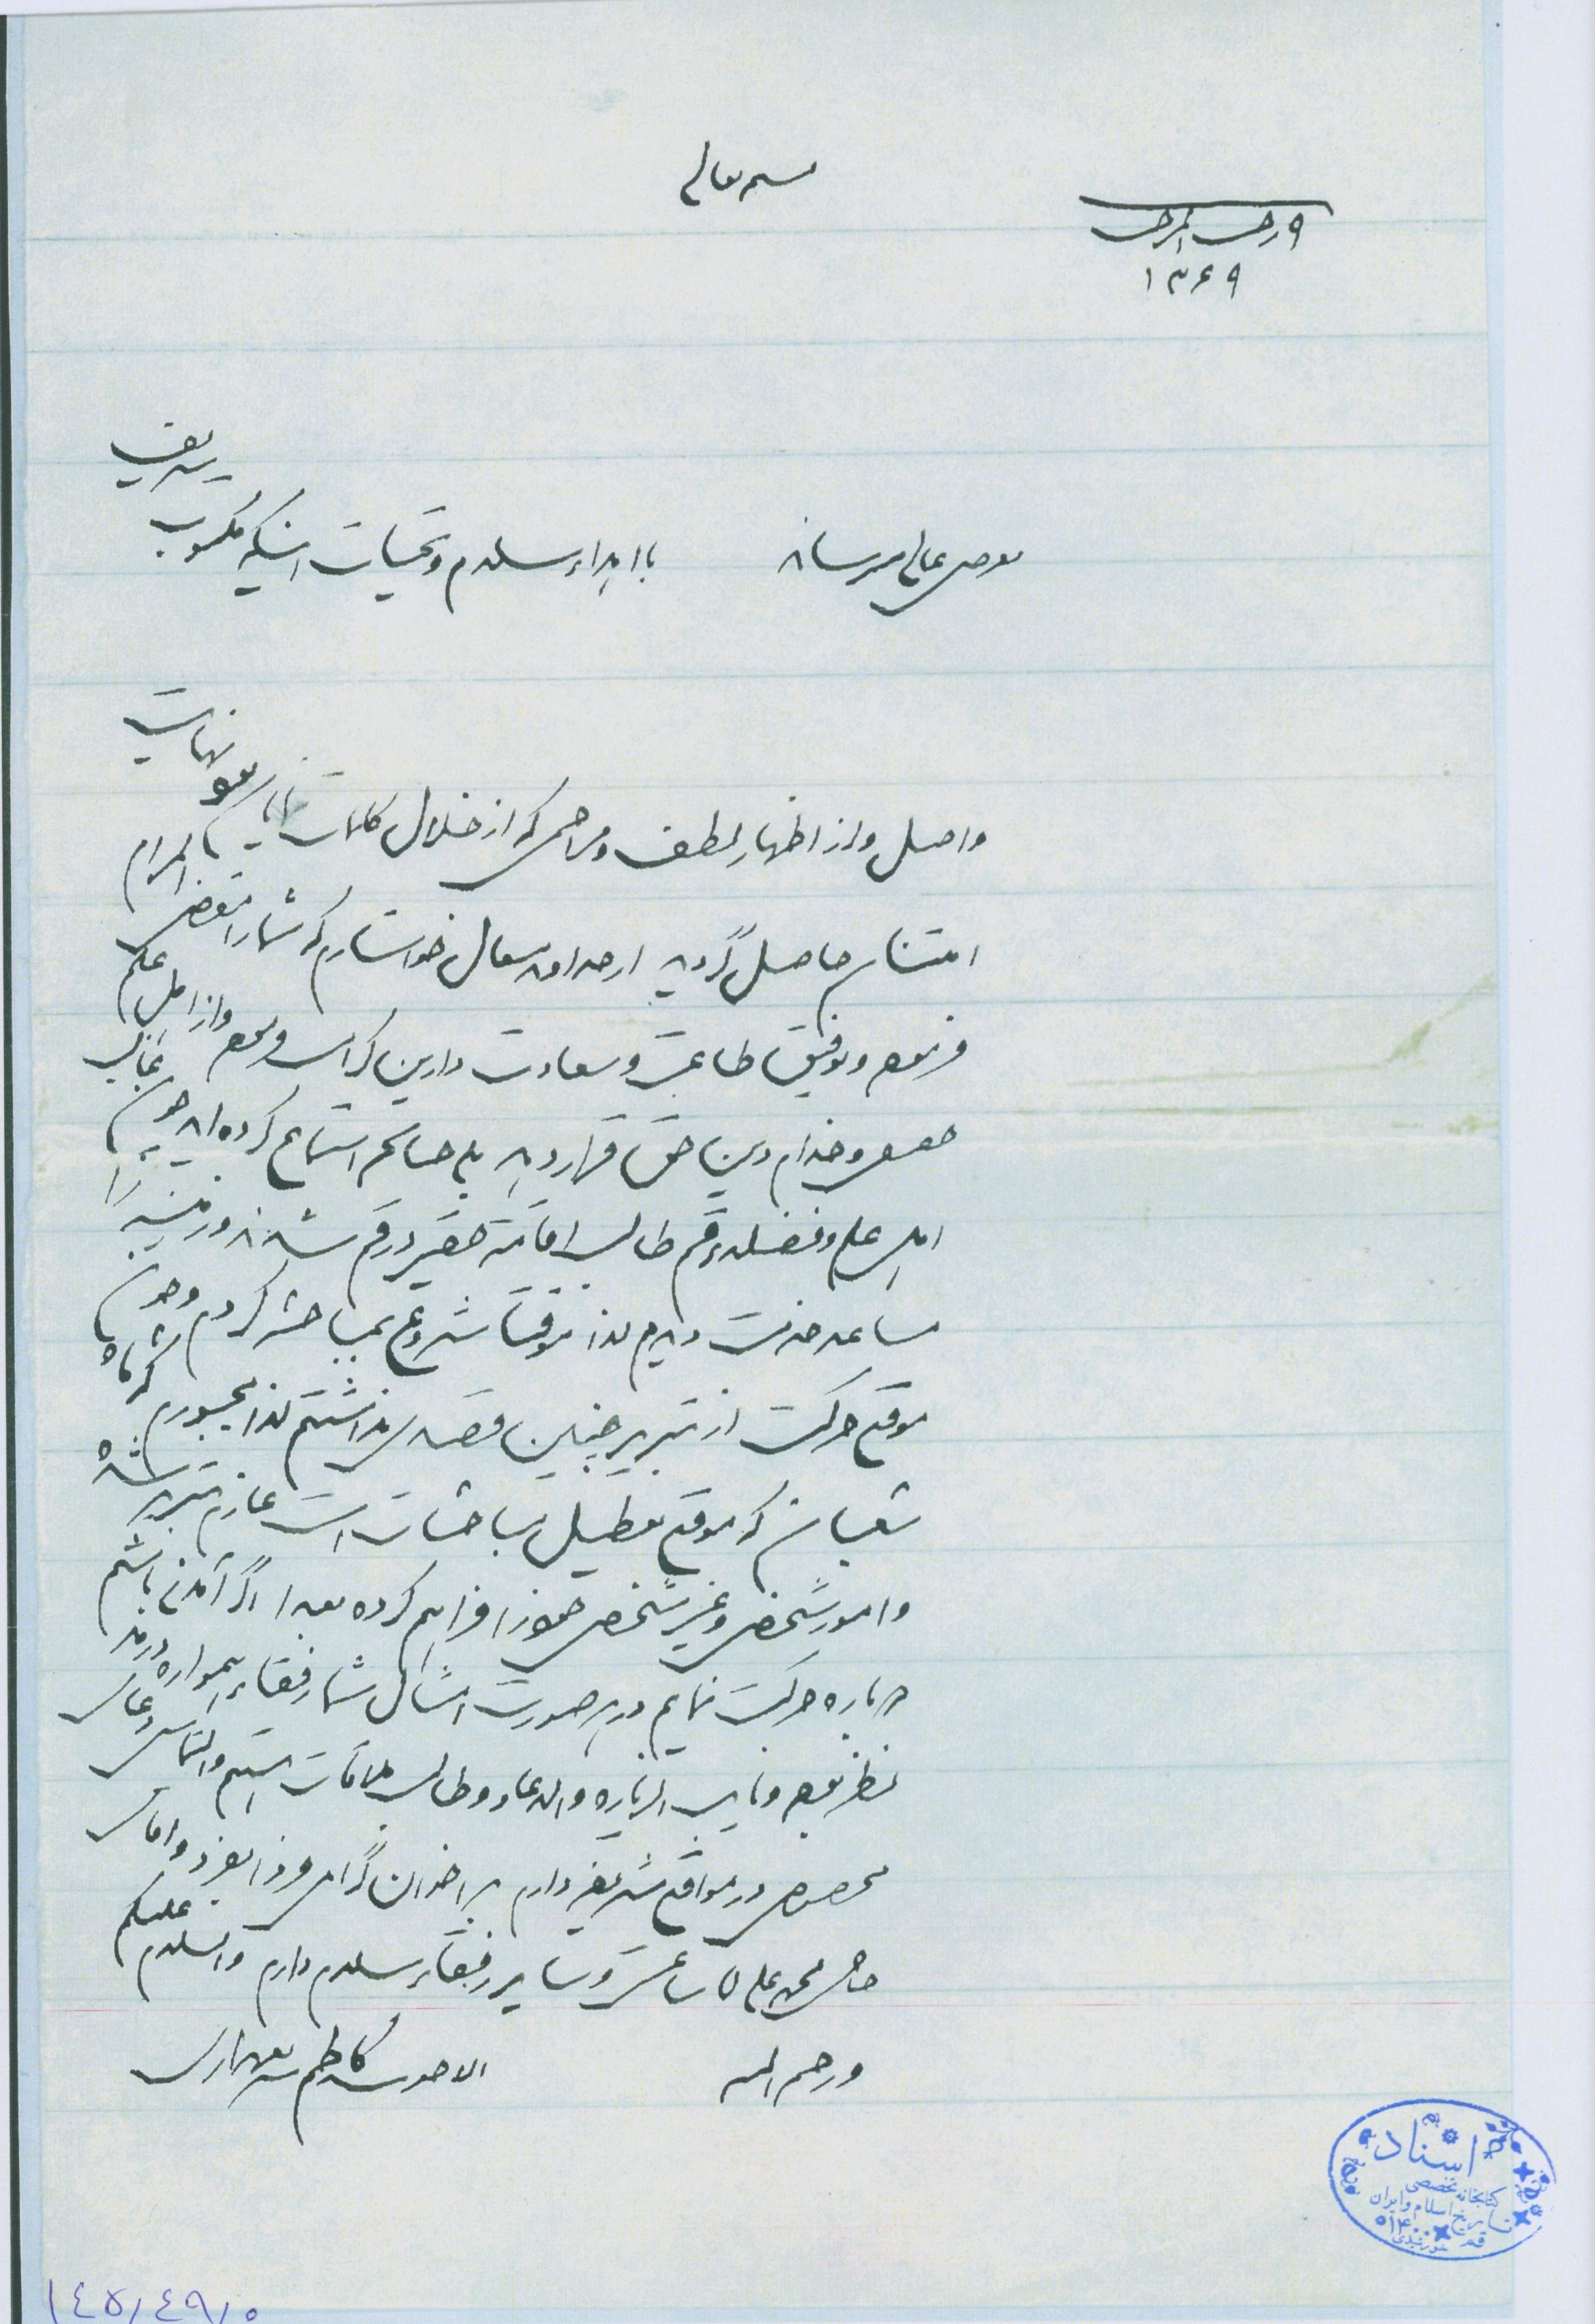 بسمه تعالی
۹ رجب المرجب
۱۳۶۹
بعرض عالی میرساند با اهداء سلام و تحیات اینکه مکتوب شریف
واصل و از اظهار لطف و مراحمی که از خلال کلمات نهایت
امتنان حاصل گردید از خداوند متعال خواستارم که شما را المرام
فرموده و توفیق طاعت و سعادت دارین کرامت فرموده و از اهل علم
حقیقی و خدام دین حق قرار دهد بلی چنانکه استماع کرده اید چون غالب
اهل علم و فضلاء قم طالب اقامت حقیر در قم شدند و زمینه را
مساعد خدمت دیدم لذا موقتا شروع بمباحثه کردم و چون
موقع حرکت از تبریز چنین قصدی نداشتم لذا مجبورم که ماه
شعبان که موقع تعطیل مباحثات است عازم تبریز شده
و امور شخصی و غیر شخصی خود را فراهم کرده بعدا اگر آمدنی باشم
دوباره حرکت نمایم در هر صورت امثال شما رفقاء همواره در مد
نظر بوده و نایب الزیاره والدعاء و طالب ملاقات هستیم و التماس دعای
مخصوص در مواقع شریفه دارم بر اخوان گرامی و آقای
حاج محمد علی ساعتی و سایر رفقاء سلام دارم والسلام علیکم
و رحمة الله
الاحقر سید کاظم شریعتمداری
اسناد
کتابخانه تخصصی
تاریخ اسلام و ایران
قم
۱٤۵/٤۹/۰